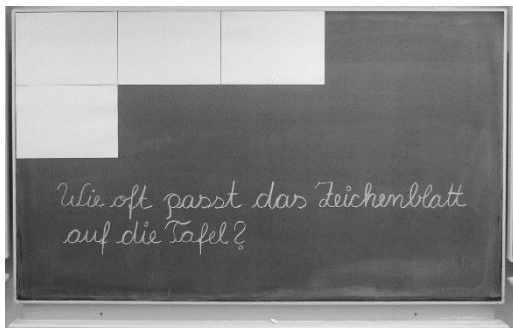 Wie oft passt das Zeichenblatt
auf die Tafel?